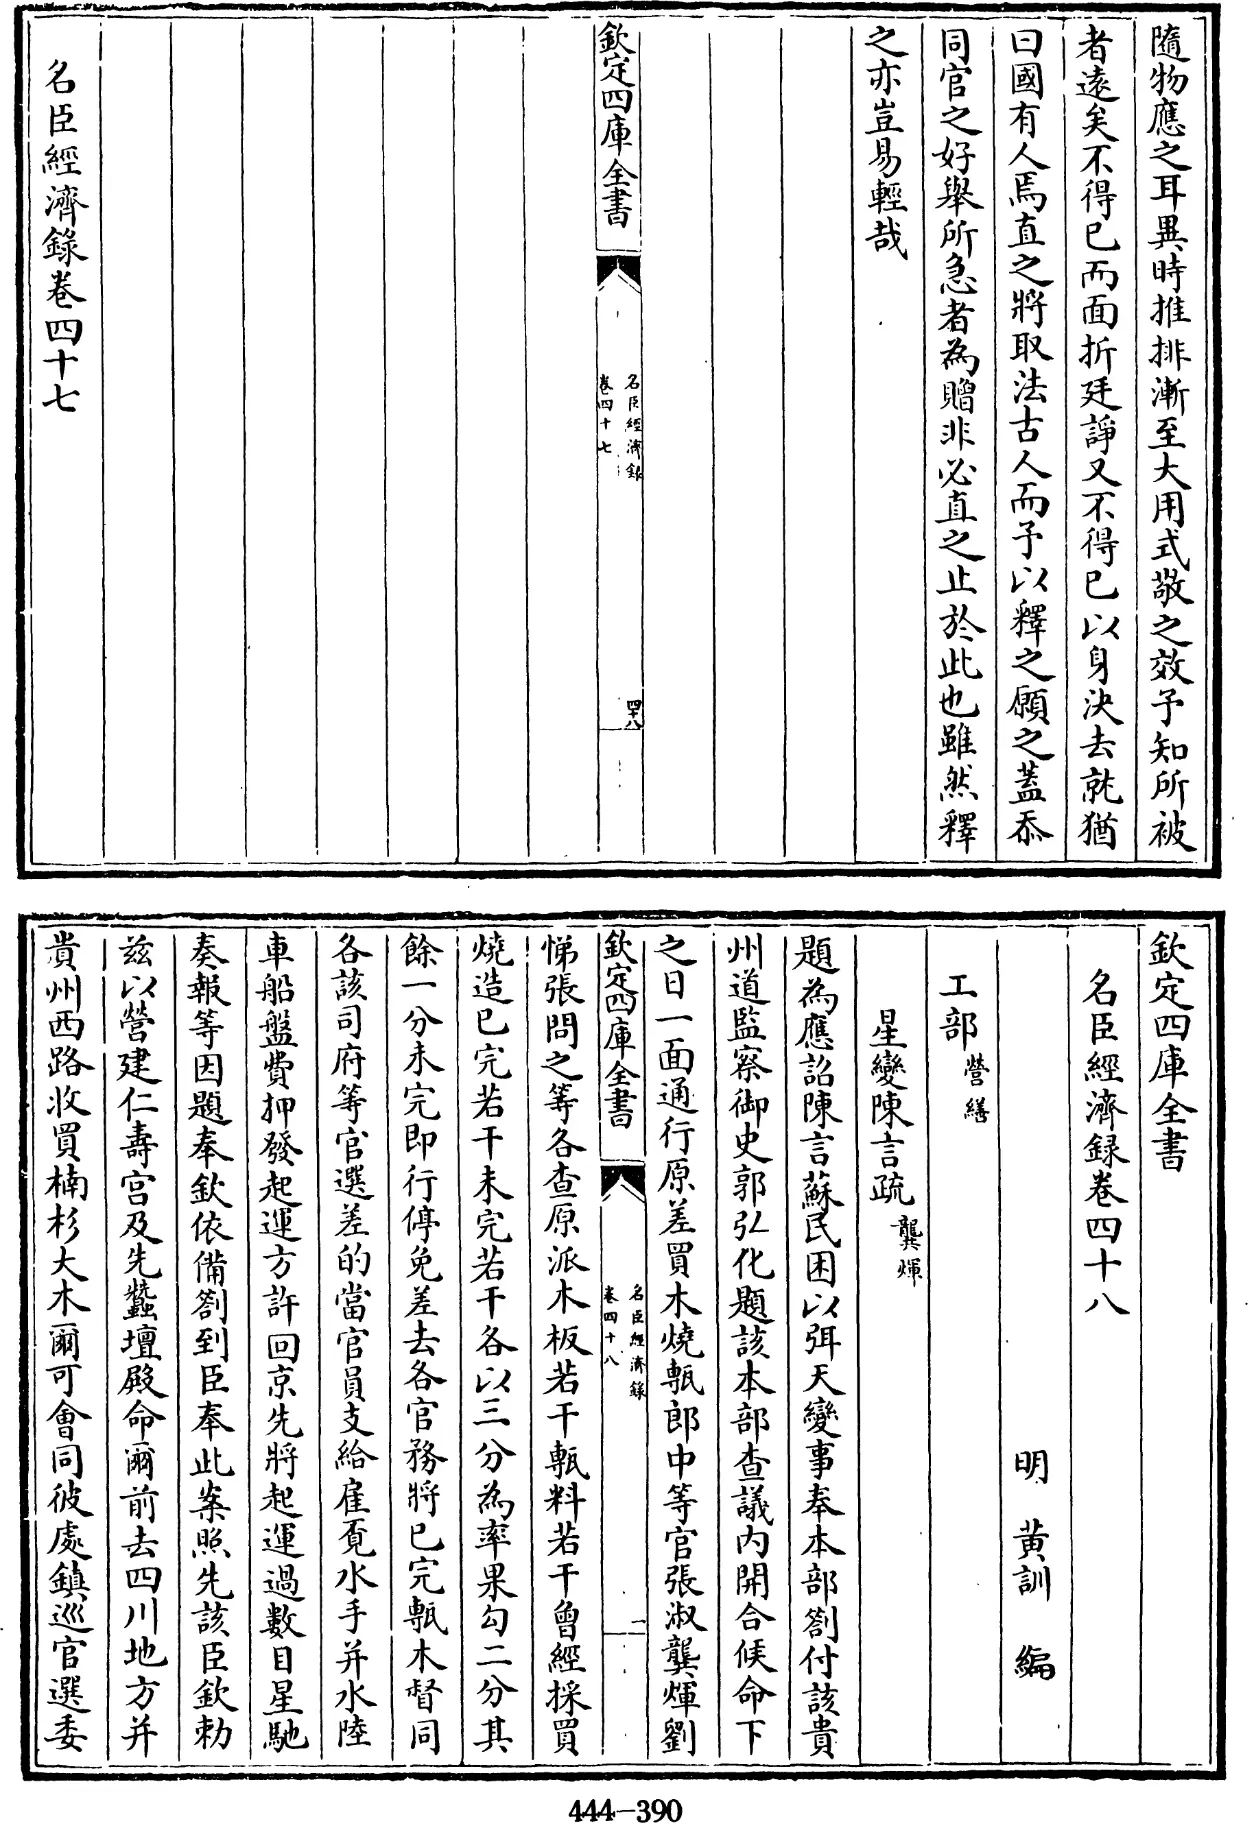 隨物應之耳異時推排漸至大用式敬之效予知所被
者遠矣不得已而面折廷諍又不得已以身決去就猶
曰國有人焉直之將取法古人而予以釋之願之蓋忝
同官之好舉所急者為贈非必直之止於此也雖然釋
之亦豈易輕哉
欽定四庫全書
名臣經濟録
卷四十七
四十八
名臣經濟錄卷四十七
欽定四庫全書
名臣經濟録卷四十八
明 黃訓 編
工部 營繕
星變陳言疏 龔煇
題為應詔陳言蘇民困以弭天變事奉本部劄付該貴
州道監察御史郭弘化題該本部查議内開合候命下
之日一面通行原差買木燒甎郎中等官張淑龔煇劉
欽定四庫全書
名臣經濟錄
卷四十八
一
悌張問之等各查原派木板若干甎料若干曾經採買
燒造已完若干未完若干各以三分為率果勾二分其
餘一分未完即行停免差去各官務將已完甎木督同
各該司府等官選差的當官員支給雇覔水手并水陸
車船盤費押發起運方許回京先將起運過數目星馳
奏報等因題奉欽依備劄到臣奉此案照先該臣欽勅
兹以營建仁壽宫及先蠶壇殿命爾前去四川地方并
貴州西路收買楠杉大木爾可會同彼處鎮巡官選委
444-390